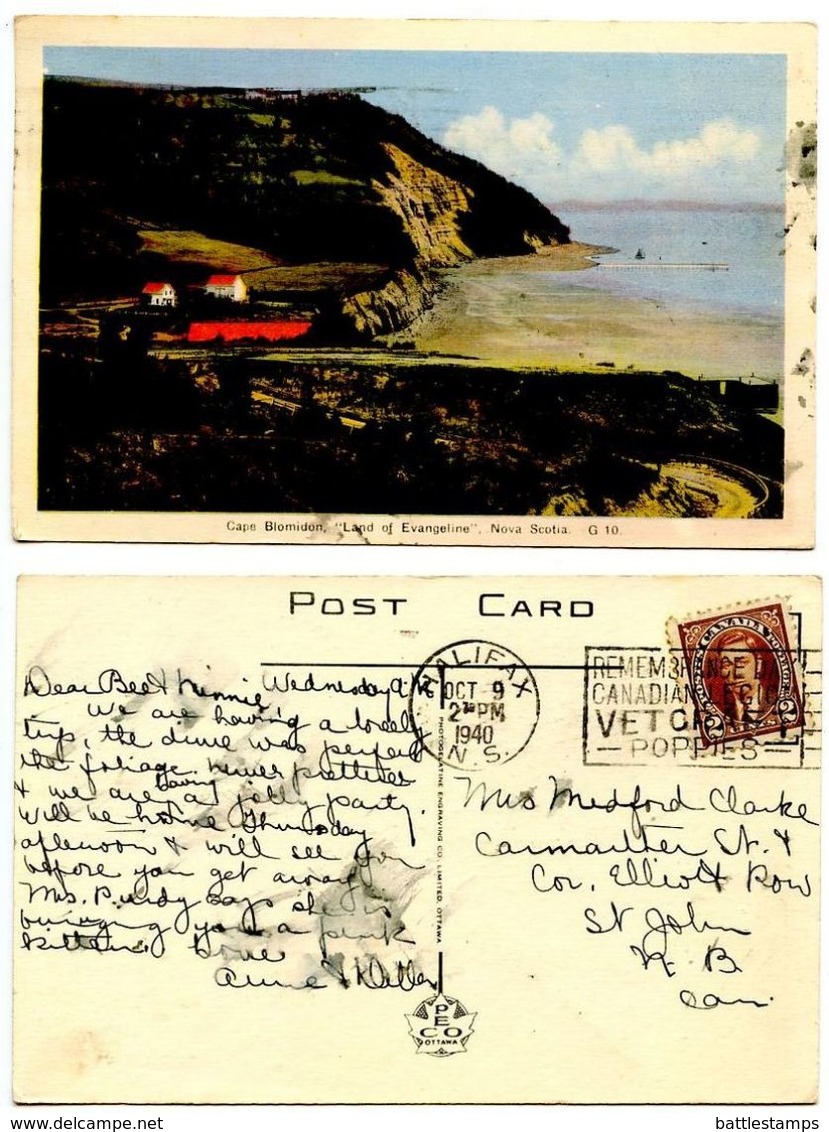 Cape Blomidon, "Land of Evangeline", Nova Scotia. G 10.
POST CARD
HALIFAX
OCT 9
2 30 PM
1940
N.S.
REMEMBRANCE
CANADIAN LEGION
VETCRAFT
POPPIES
CANADA
POSTES POSTAGE
2 2
Dear Bee & Minnie, Wednesday
We are having a lovely
trip, the drive was perfect
the foliage never prettier
& we are having a jolly party.
Will be home Thursday
afternoon & will see you
before you get away.
Mrs. Purdy says she is
bringing you a pink
kitten. Love
Anne &
Mrs Medford Clarke
Carmarthen St. &
Cor. Elliott Row
St John
N. B.
Can.
PHOTOGELATINE ENGRAVING CO. LIMITED, OTTAWA
PECO
OTTAWA
www.delcampe.net
battlestamps